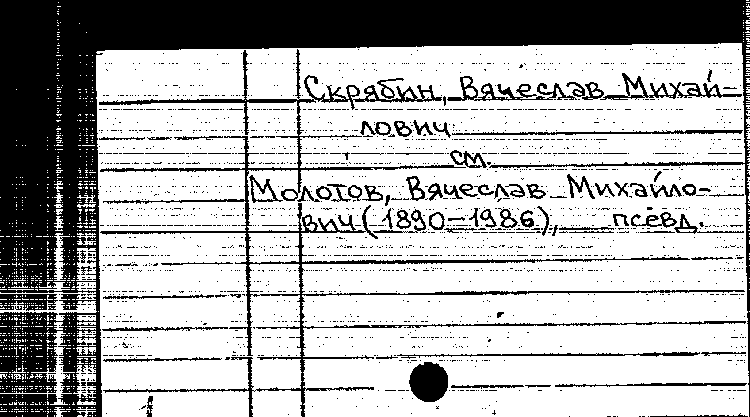 Скрябин, Вячеслав Михай-
лович
см.
Молотов, Вячеслав Михайло-
вич (1890-1986), псевд.
1